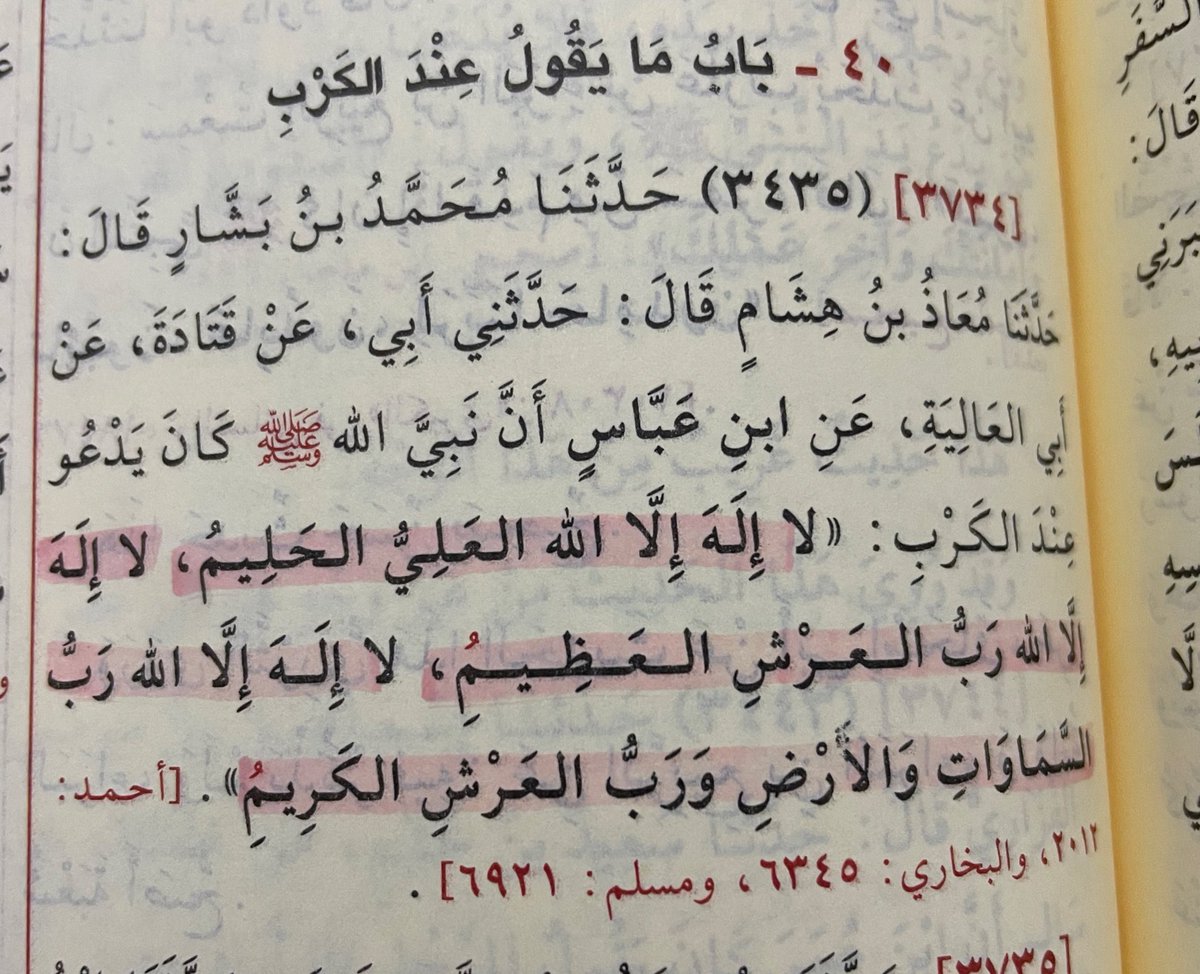 ٤٠ - بَابُ مَا يَقُولُ عِنْدَ الكَرْبِ
[٣٧٣٤] (٣٤٣٥) حَدَّثَنَا مُحَمَّدُ بنُ بَشَّارٍ قَالَ:
حَدَّثَنَا مُعَاذُ بنُ هِشَامٍ قَالَ: حَدَّثَنِي أَبِي، عَنْ قَتَادَةَ، عَنْ
أَبِي العَالِيَةِ، عَنِ ابنِ عَبَّاسٍ أَنَّ نَبِيَّ الله ﷺ كَانَ يَدْعُو
عِنْدَ الكَرْبِ: «لا إِلَهَ إِلَّا الله العَلِيُّ الحَلِيمُ، لا إِلَهَ
إِلَّا الله رَبُّ العَرْشِ العَظِيمُِ، لا إِلَهَ إِلَّا الله رَبُّ
السَّمَاوَاتِ وَالأَرْضِ وَرَبُّ العَرْشِ الكَرِيمُِ». [أحمد:
٢٠١٢، والبخاري: ٦٣٤٥، ومسلم: ٦٩٢١].
[٣٧٣٥]
السَّفَرِ
قَالَ: